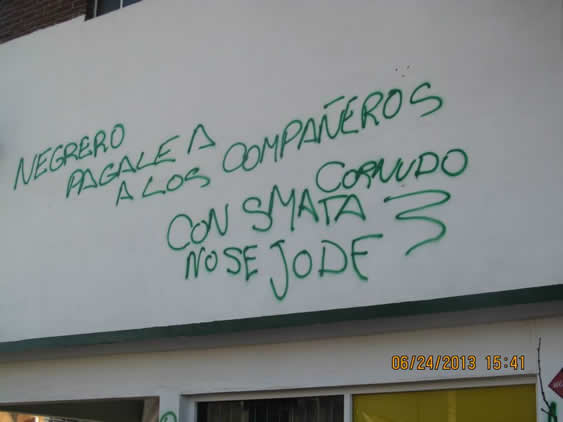 NEGRERO
PAGALE A
A LOS COMPAÑEROS
CORNUDO
CON SMATA
NO SE JODE
06/24/2013 15:41